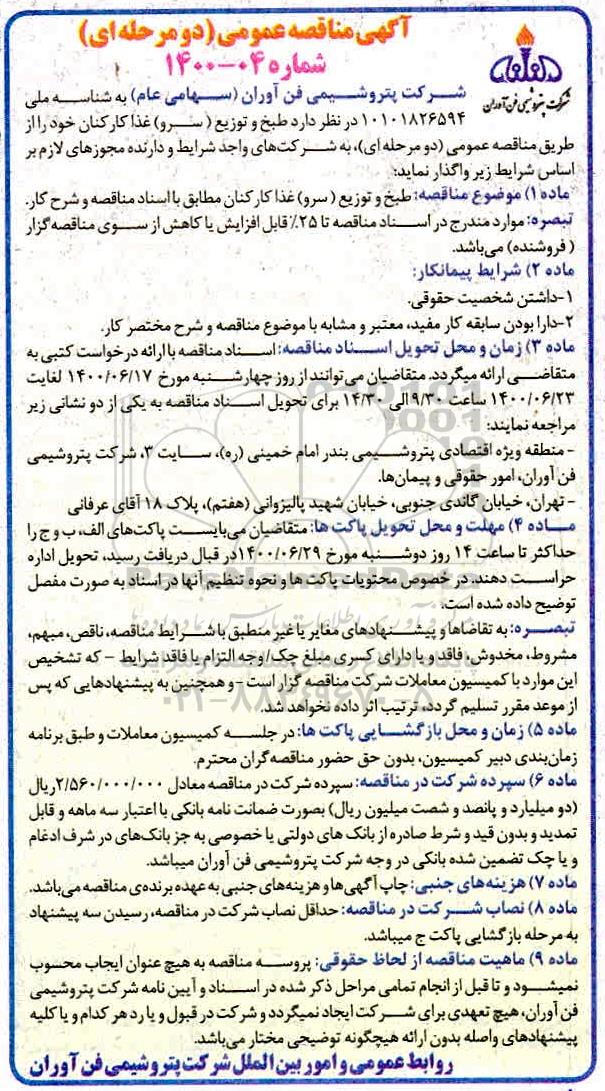 آگهی مناقصه عمومی (دو مرحله ای)
شماره ۰۴-۱۴۰۰
شرکت پتروشیمی فن آوران
شرکت پتروشیمی فن آوران (سهامی عام) به شناسه ملی
۱۰۱۰۱۸۲۶۵۹۴ در نظر دارد طبخ و توزیع ( سرو) غذا کارکنان خود را از
طریق مناقصه عمومی (دو مرحله ای)، به شرکت‌های واجد شرایط و دارنده مجوزهای لازم بر
اساس شرایط زیر واگذار نماید:
ماده ۱) موضوع مناقصه: طبخ و توزیع ( سرو) غذا کارکنان مطابق با اسناد مناقصه و شرح کار.
تبصره: موارد مندرج در اسناد مناقصه تا ۲۵٪ قابل افزایش یا کاهش از سوی مناقصه‌گزار
( فروشنده) می‌باشد.
ماده ۲) شرایط پیمانکار:
۱-داشتن شخصیت حقوقی.
۲-دارا بودن سابقه کار مفید، معتبر و مشابه با موضوع مناقصه و شرح مختصر کار.
ماده ۳) زمان و محل تحویل اسناد مناقصه: اسناد مناقصه با ارائه درخواست کتبی به
متقاضی ارائه میگردد. متقاضیان می‌توانند از روز چهارشنبه مورخ ۱۴۰۰/۰۶/۱۷ لغایت
۱۴۰۰/۰۶/۲۳ ساعت ۹/۳۰ الی ۱۴/۳۰ برای تحویل اسناد مناقصه به یکی از دو نشانی زیر
مراجعه نمایند:
- منطقه ویژه اقتصادی پتروشیمی بندر امام خمینی (ره)، سایت ۳، شرکت پتروشیمی
فن آوران، امور حقوقی و پیمان‌ها.
- تهران، خیابان گاندی جنوبی، خیابان شهید پالیزوانی (هفتم)، پلاک ۱۸ آقای عرفانی
ماده ۴) مهلت و محل تحویل پاکت ها: متقاضیان می‌بایست پاکت‌های الف، ب و ج را
حداکثر تا ساعت ۱۴ روز دوشنبه مورخ ۱۴۰۰/۰۶/۲۹ در قبال دریافت رسید، تحویل اداره
حراست دهند. در خصوص محتویات پاکت ها و نحوه تنظیم آنها در اسناد به صورت مفصل
توضیح داده شده است.
تبصره: به تقاضاها و پیشنهادهای مغایر یا غیر منطبق با شرایط مناقصه، ناقص، مبهم،
مشروط، مخدوش، فاقد و یا دارای کسری مبلغ چک/وجه التزام یا فاقد شرایط – که تشخیص
این موارد با کمیسیون معاملات شرکت مناقصه گزار است - و همچنین به پیشنهادهایی که پس
از موعد مقرر تسلیم گردد، ترتیب اثر داده نخواهد شد.
ماده ۵) زمان و محل بازگشایی پاکت ها: در جلسه کمیسیون معاملات و طبق برنامه
زمان‌بندی دبیر کمیسیون، بدون حق حضور مناقصه‌گران محترم.
ماده ۶) سپرده شرکت در مناقصه: سپرده شرکت در مناقصه معادل ۲/۵۶۰/۰۰۰/۰۰۰ ریال
(دو میلیارد و پانصد و شصت میلیون ریال) بصورت ضمانت نامه بانکی با اعتبار سه ماهه و قابل
تمدید و بدون قید و شرط صادره از بانک های دولتی یا خصوصی به جز بانک‌های در شرف ادغام
و یا چک تضمین شده بانکی در وجه شرکت پتروشیمی فن آوران میباشد.
ماده ۷) هزینه های جنبی: چاپ آگهی‌ها و هزینه‌های جنبی به عهده برنده‌ی مناقصه می‌باشد.
ماده ۸) نصاب شرکت در مناقصه: حداقل نصاب شرکت در مناقصه، رسیدن سه پیشنهاد
به مرحله بازگشایی پاکت ج میباشد.
ماده ۹) ماهیت مناقصه از لحاظ حقوقی: پروسه مناقصه به هیچ عنوان ایجاب محسوب
نمیشود و تا قبل از انجام تمامی مراحل ذکر شده در اسناد و آیین نامه شرکت پتروشیمی
فن آوران، هیچ تعهدی برای شرکت ایجاد نمیگردد و شرکت در قبول و یا رد هر کدام و یا کلیه
پیشنهادهای واصله بدون ارائه هیچگونه توضیحی مختار می‌باشد.
روابط عمومی و امور بین الملل شرکت پتروشیمی فن آوران